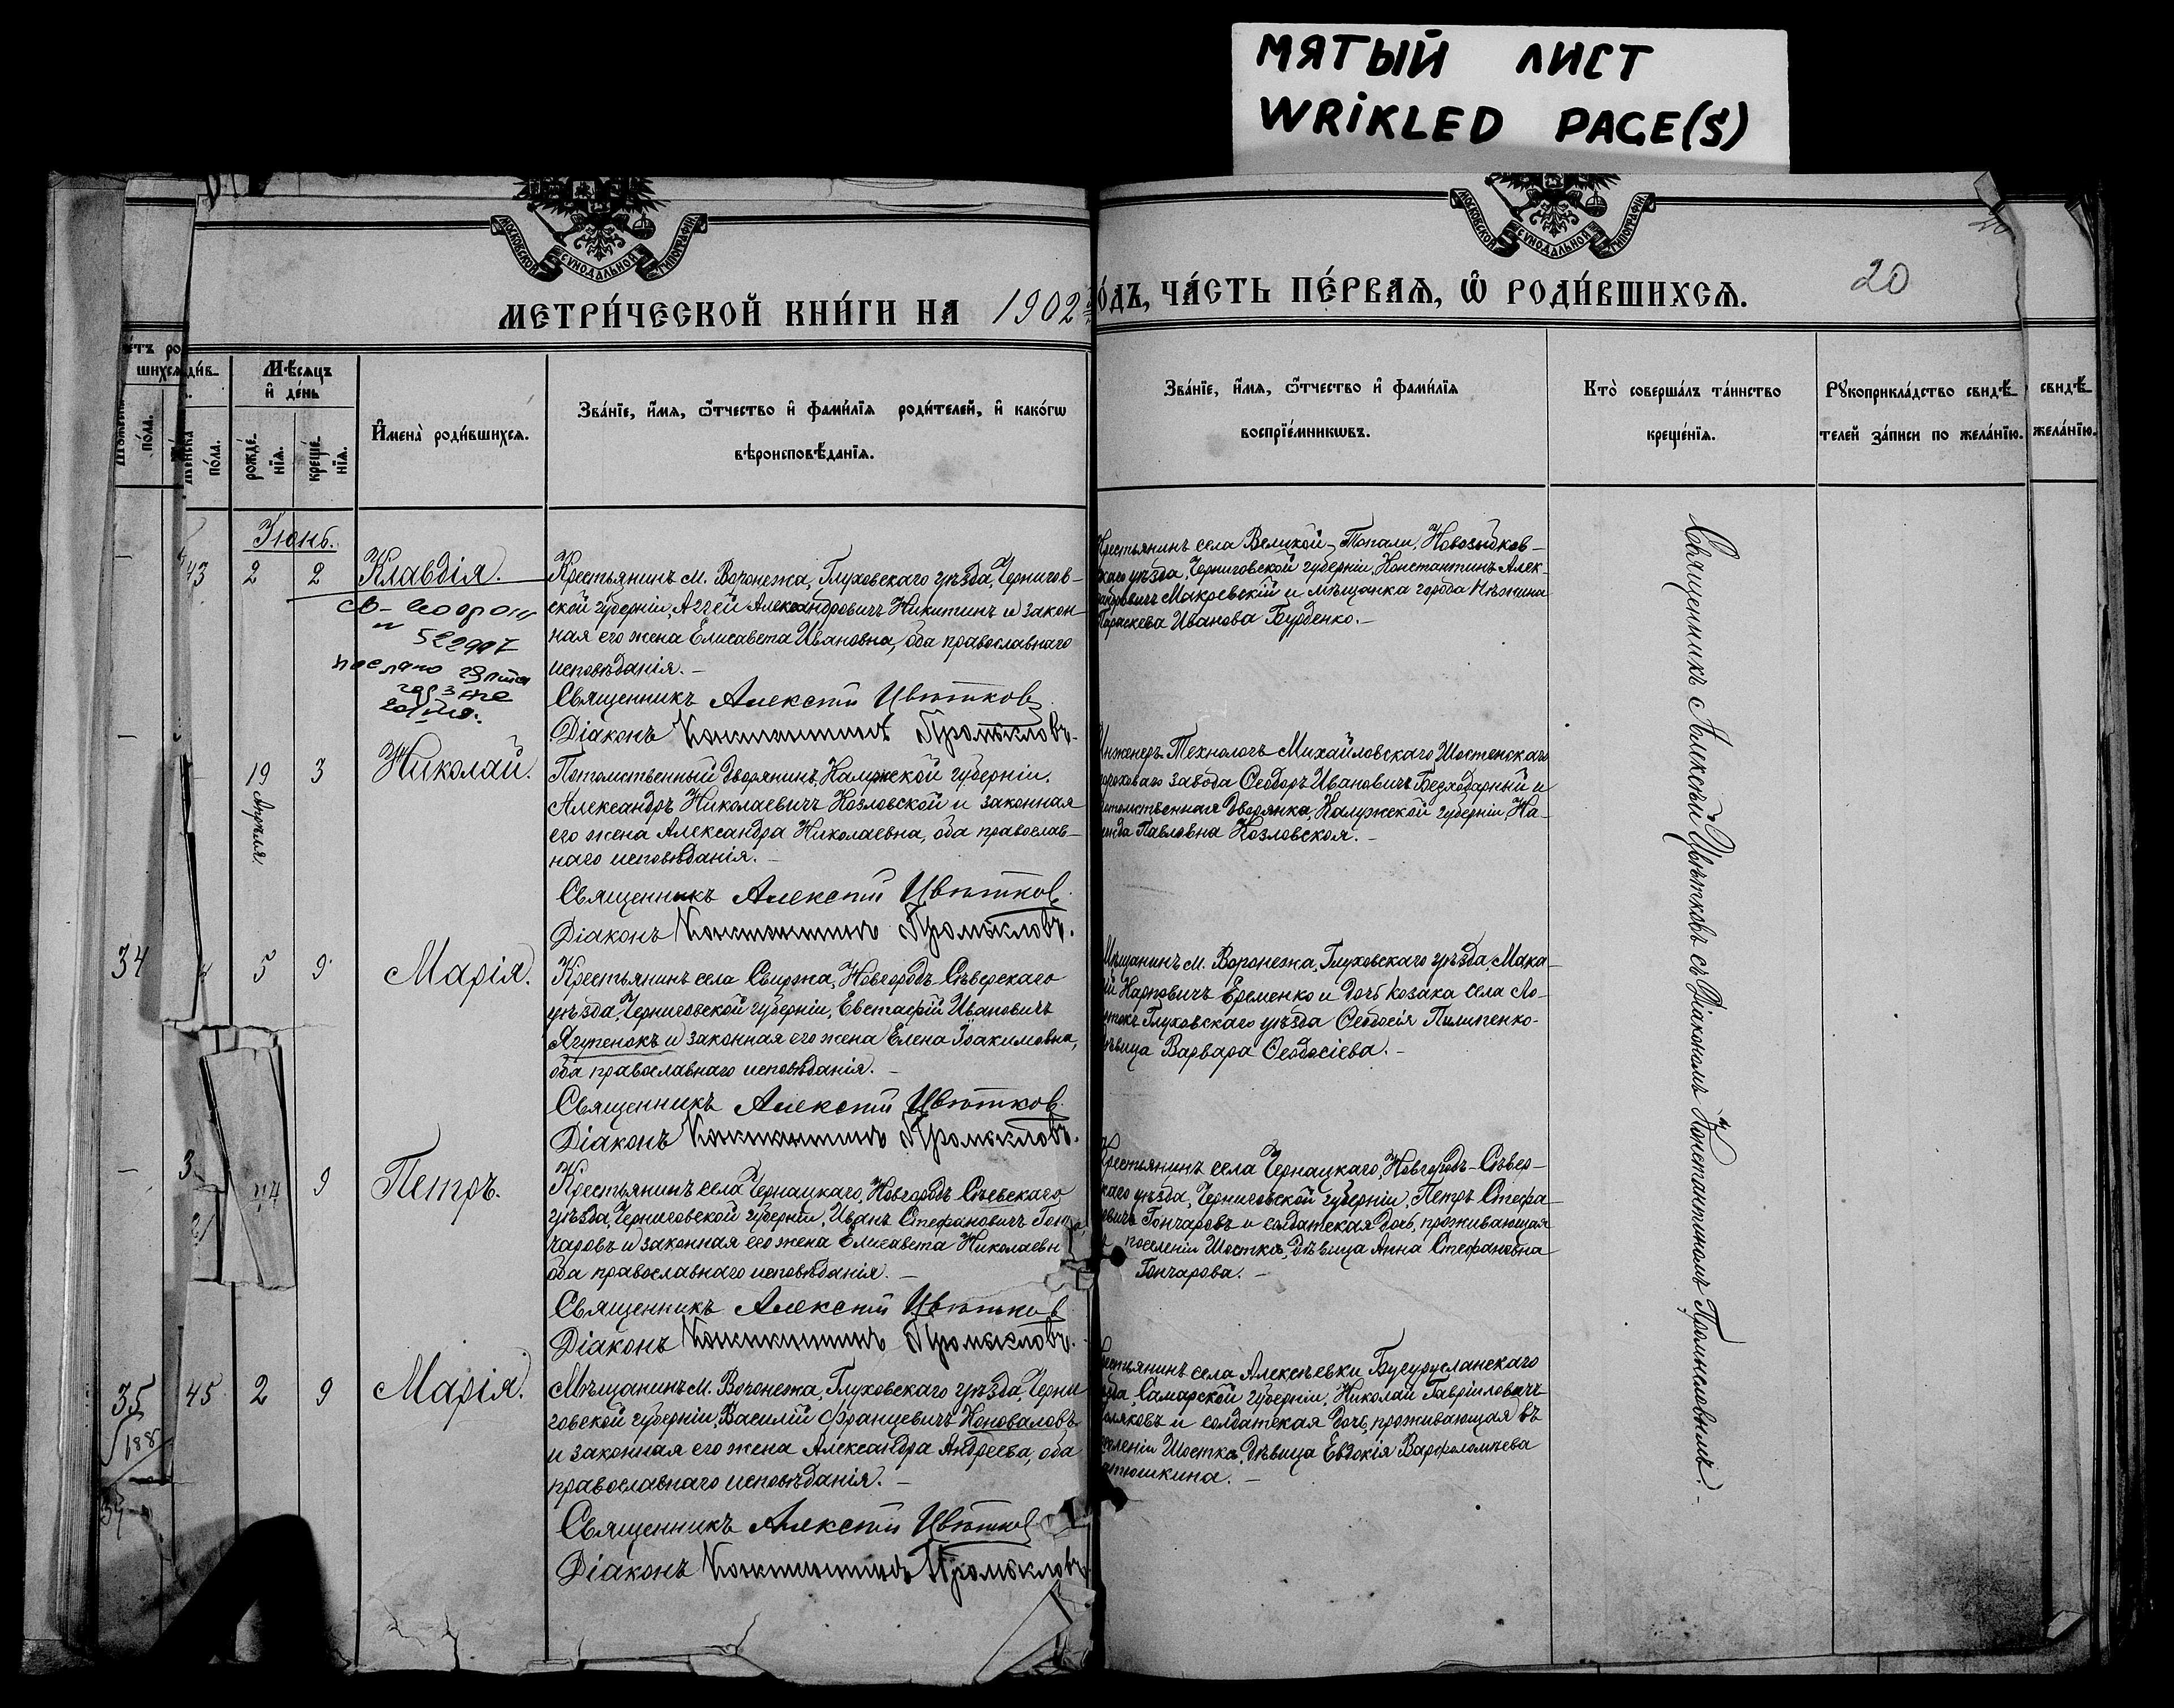 МЯТЫЙ ЛИСТ
WRIKLED PAGE(S)
МОСКОВСКОЙ СѴНОДАЛЬНОЙ ТИПОГРАФІИ
МОСКОВСКОЙ СѴНОДАЛЬНОЙ ТИПОГРАФІИ
МЕТРИ́ЧЕСКОЙ КНИ́ГИ НА 1902
О́ДЪ, ЧА́СТЬ ПЕ́РВАѦ, Ѡ҆ РОДИ́ВШИХСѦ.
20
Мѣ́сѧцъ
и҆ де́нь
рожде́-
нїѧ.
креще́-
нїѧ.
по́ла.
по́ла.
И҆мена̀ роди́вшихсѧ.
Зва́нїе, и҆́мѧ, ѻ҆́тчество и҆ фами́лїѧ роди́телей, и҆ како́гѡ
вѣроисповѣ́данїѧ.
Зва́нїе, и҆́мѧ, ѻ҆́тчество и҆ фами́лїѧ
воспрїе́мникѡвъ.
Кто̀ соверша́лъ та́инство
креще́нїѧ.
Рꙋкоприкла́дство свидѣ́-
телей за́писи по жела́нїю.
свидѣ́-
жела́нїю.
Іюнь.
43 2 2 Клавдія.
Крестьянинъ м. Воронежа, Глуховскаго уѣзда, Чернигов-
ской губерніи, Аггей Александровичъ Никитинъ и закон-
ная его жена Елисавета Ивановна, оба православнаго
исповѣданія. –
Священникъ Алексѣй Цвѣтков
Діаконъ Константинъ Промысловъ.
Крестьянинъ села Великой-Топали, Новозыбков-
скаго уѣзда, Черниговской губерніи, Константинъ Алек-
андровичъ Макревскій и мѣщанка города Нѣжина
Параскева Иванова Бурденко. –
19 Апрѣля 3 Николай.
Потомственный Дворянинъ, Калужской губерніи,
Александръ Николаевичъ Козловской и законная
его жена Александра Николаевна, оба православ-
наго исповѣданія. –
Священникъ Алексѣй Цвѣтков
Діаконъ Константинъ Промысловъ.
Инженеръ-Технологъ Михайловскаго Шостенскаго
пороховаго завода Ѳеодоръ Ивановичъ и
потомственная Дворянка, Калужской губерніи, На-
ежда Павловна Козловская. –
34 5 9 Марія.
Крестьянинъ села Свиржа, Новгородъ-Сѣверскаго
уѣзда, Черниговской губерніи, Евстафій Ивановичъ
Ягупенокъ и законная его жена Елена Іоакимовна,
оба православнаго исповѣданія. –
Священникъ Алексѣй Цвѣтков
Діаконъ Константинъ Промысловъ.
Мѣщанинъ м. Воронежа, Глуховскаго уѣзда, Мака-
ій Карповичъ Еременко и дочь козака села Ло-
Глуховскаго уѣзда Ѳеодосія Пилипенко-
ѣвица Варвара Ѳеодосіева. –
9 Петръ.
Крестьянинъ села Чернацкаго, Новгородъ-Сѣвевскаго
уѣзда, Черниговской губерніи, Иванъ Стефановичъ Гон
чаровъ и законная его жена Елисавета Николаевн
оба православнаго исповѣданія. –
Священникъ Алексѣй Цвѣтков
Діаконъ Константинъ Промысловъ.
Крестьянинъ села Чернацкаго, Новгородъ-Сѣвер-
скаго уѣзда, Черниговской губерніи, Петръ Стефа-
овичъ Гончаровъ и солдатская дочь, проживающая
поселеніи Шостка, дѣвица Анна Стефановна
Гончарова. –
35 45 2 9 Марія.
Мѣщанинъ м. Воронежа, Глуховскаго уѣзда, Черни
говской губерніи, Василій Францевичъ Коноваловъ
и законная его жена Александра Андреева, оба
православнаго исповѣданія. –
Священникъ Алексѣй Цвѣтков
Діаконъ Константинъ Промысловъ
естьянинъ села Алексѣевки Бугурусланскаго
зда, Самарской губерніи, Николай Гавріиловичъ
оляковъ и солдатская дочь, проживающая въ
селеніи Шостка, дѣвица Евдокія Варфоломѣева
атюшкина. –
Священникъ Алексѣй Цвѣтковъ съ Діакономъ Константиномъ Промысловымъ. –